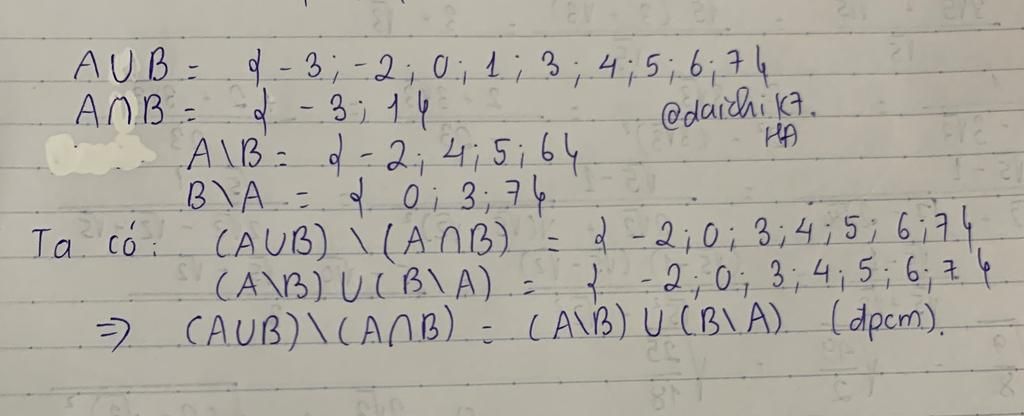 A∪B = {-3; -2; 0; 1; 3; 4; 5; 6; 7}
A∩B = {-3; 1}
@daichik7.
HA
A\B = {-2; 4; 5; 6}
B\A = {0; 3; 7}
Ta có: (A∪B) \ (A∩B) = {-2; 0; 3; 4; 5; 6; 7}
(A\B) ∪ (B\A) = {-2; 0; 3; 4; 5; 6; 7}
⇒ (A∪B)\(A∩B) = (A\B) ∪ (B\A) (dpcm).